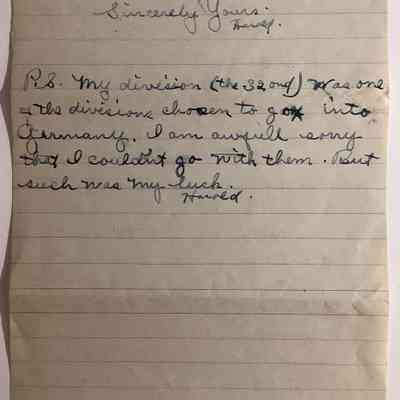 Sincerely Yours.
Harold.
P.S. My division (the 32 ond) was one
of the divisions chosen to go into
Germany. I am awfull sorry
that I couldn't go with them. But
such was my luck.
Harold.